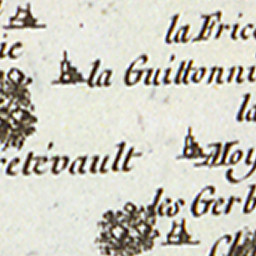 la Frice
ie
la Guittonni
la
retévault
Moy
les Gerb